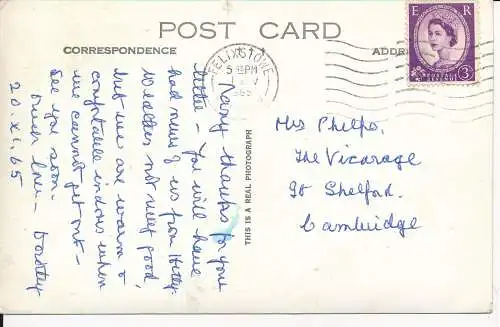 POST CARD
CORRESPONDENCE
ADDRE
Many thanks for your
letter – You will have
had news of us from Hetty.
Weather not very good,
but we are warm &
comfortable indoors when
we cannot get out –
See you soon.
Much love – Dorothy
20.XI.65
THIS IS A REAL PHOTOGRAPH
FELIXSTOWE
5 PM
1965
E R
POSTAGE
REVENUE
3D
Mrs Phelps,
The Vicarage
Gt Shelford.
Cambridge